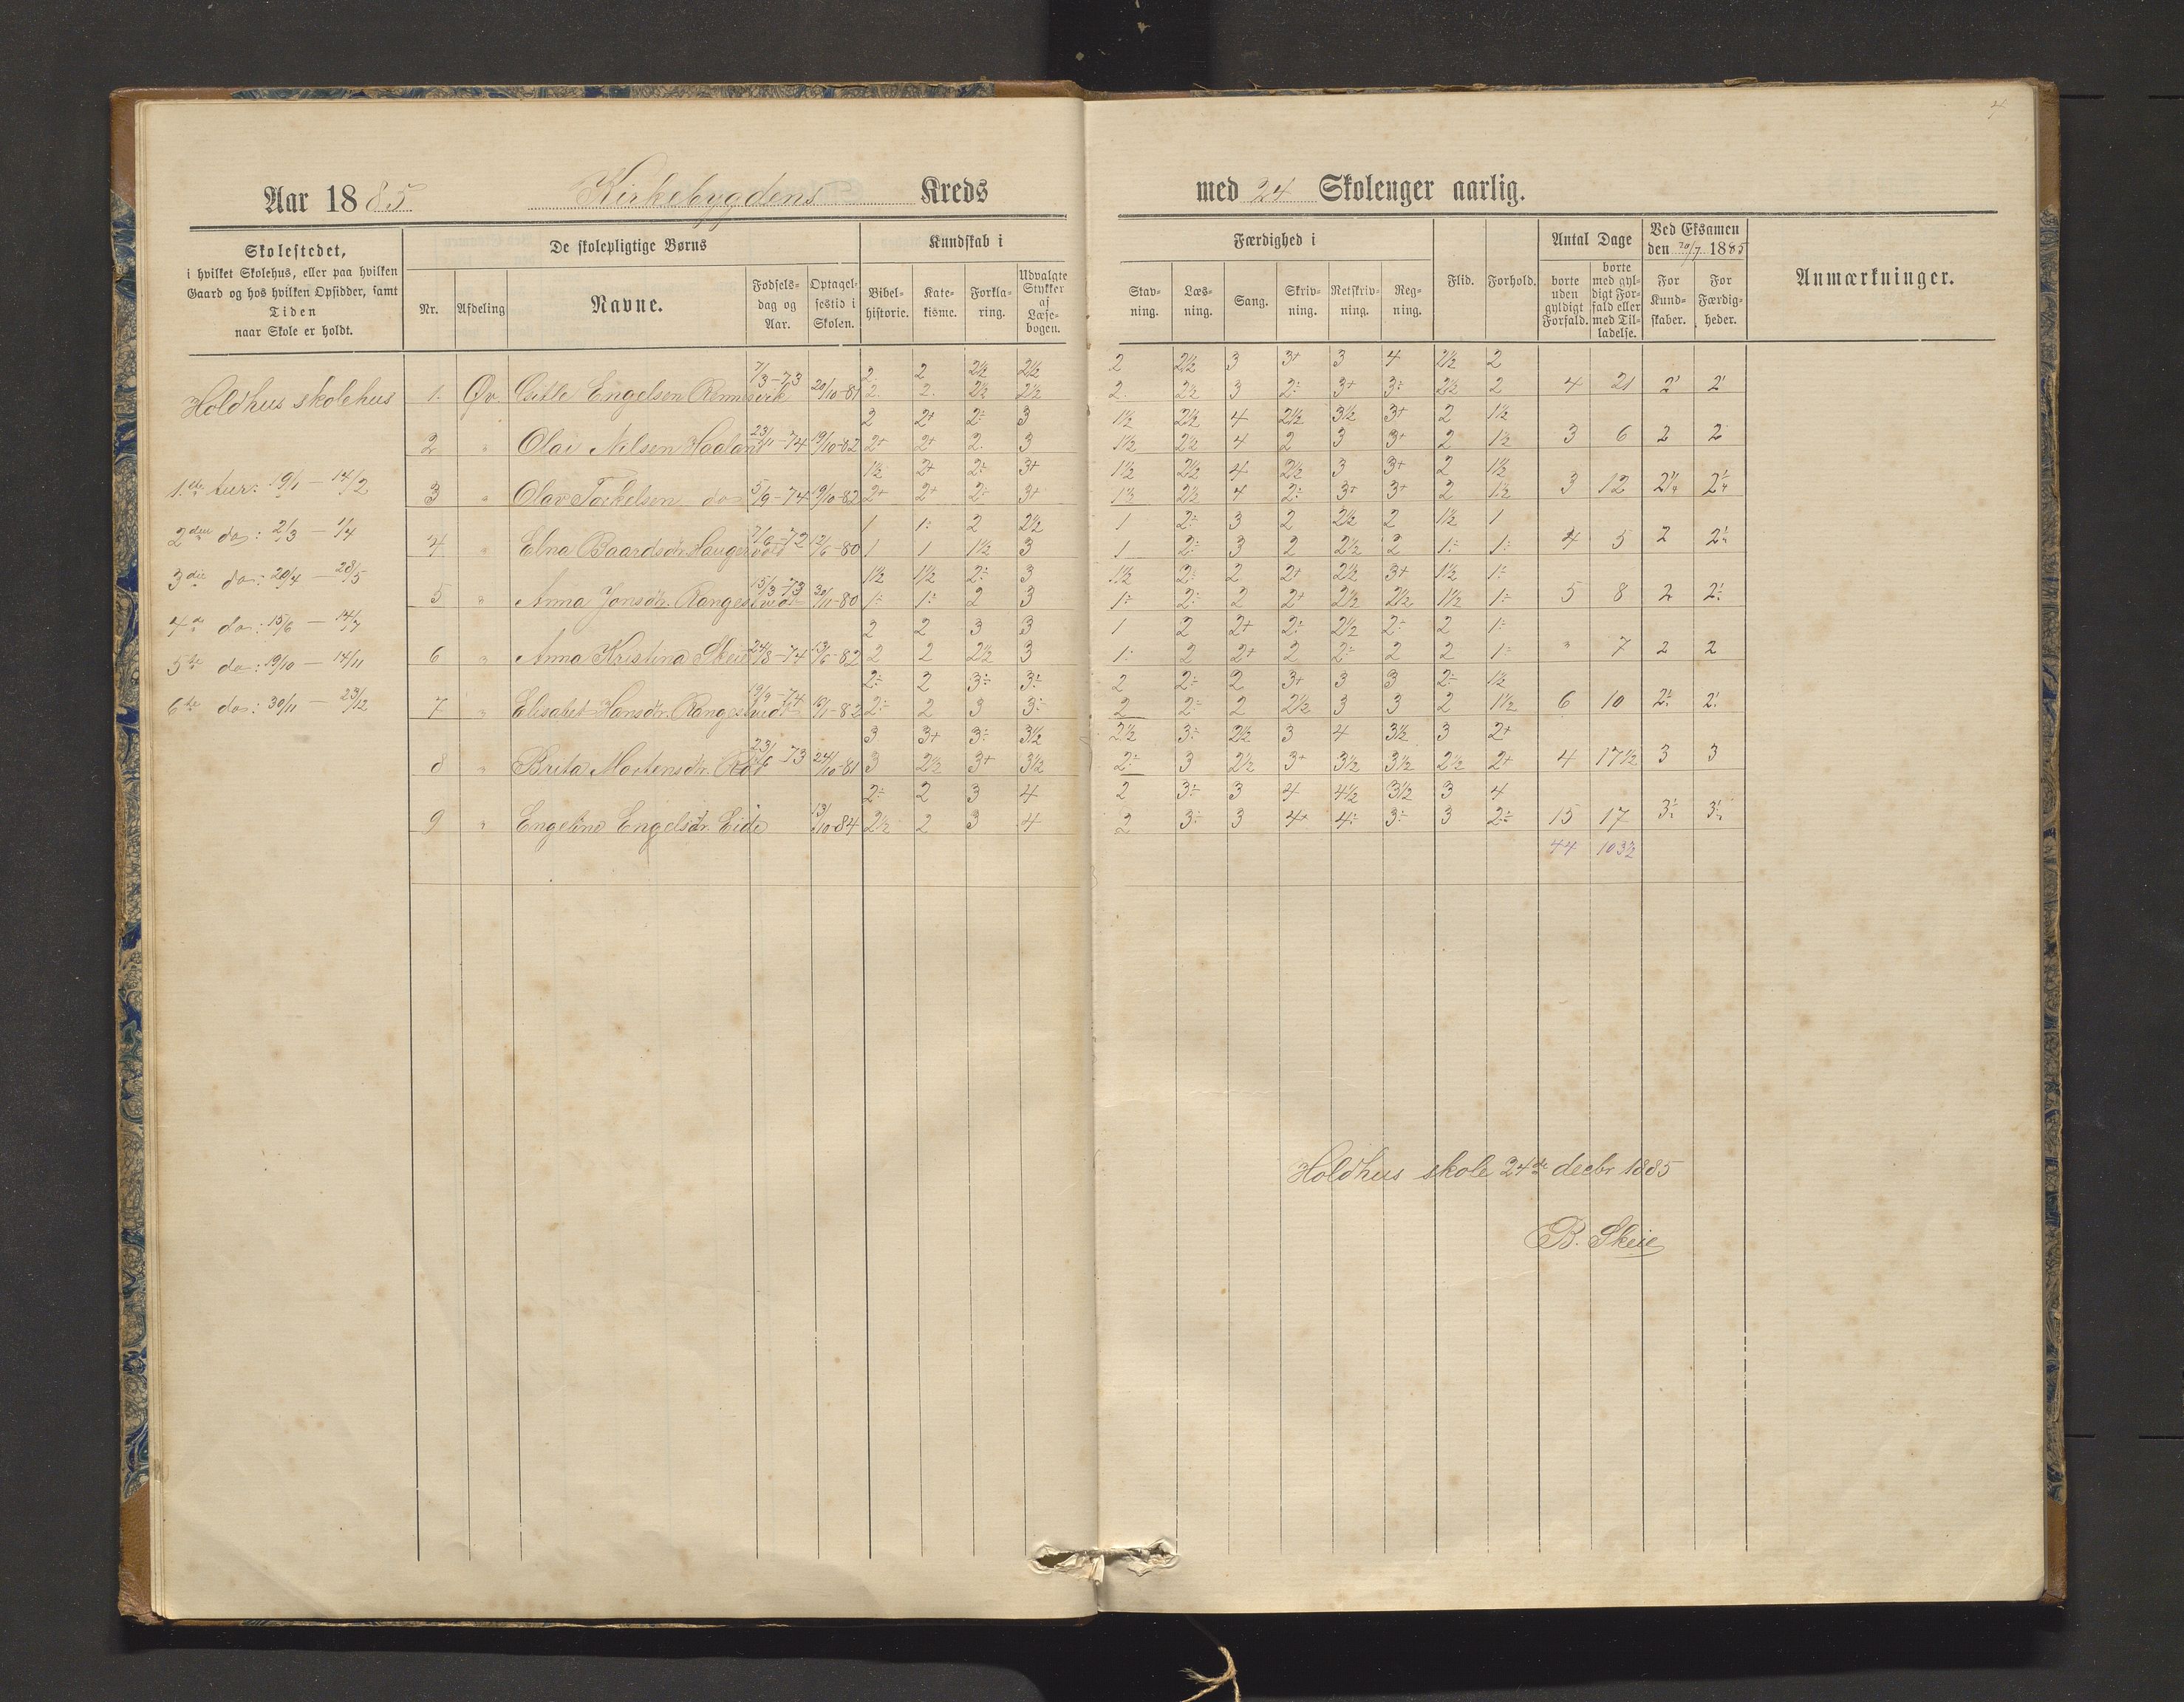 4
Aar 1885 Kirkebygdens Kreds med 24 Skoleuger aarlig.
Skolestedet,
i hvilket Skolehus, eller paa hvilken
Gaard og hos hvilken Opsidder, samt
Tiden
naar Skole er holdt.
De skolepligtige Børns
Nr. Afdeling Navne. Fødsels-dag og Aar. Optagel-sestid i Skolen.
Kundskab i
Bibel-historie. Kate-kisme. Forkla-ring. Udvalgte Stykker af Læse-bogen.
Færdighed i
Stav-ning. Læs-ning. Sang. Skriv-ning. Retskriv-ning. Reg-ning.
Flid. Forhold.
Antal Dage
borte uden gyldigt Forfald. borte med gyl-digt For-fald eller med Til-ladelse.
Ved Eksamen
den 20/7 1885
For Kund-skaber. For Færdig-heder.
Anmærkninger.
Holdhus skolehus
1ste tur: 19/1 — 14/2
2den do: 2/3 — 1/4
3die do: 20/4 — 28/5
4de do: 15/6 — 14/7
5te do: 19/10 — 14/11
6te do: 30/11 — 23/12
7/3-73 2 2 2½ 2½ 2 2½ 3 3+ 3 4 2½ 2
1. Øv. Engelsen 20/10-81 2 2 2½ 2½ 2 2½ 3 2÷ 3+ 3÷ 2½ 2 4 21
2 2+ 2÷ 3 1½ 2½ 4 2½ 3½ 3+ 2 1½
2 " Olai Nilsen Haaland 23/11-74 19/10-82 2+ 2+ 2 3 1½ 2½ 4 2 3 3+ 2 1½ 3 6 2 2
1½ 2+ 2÷ 3+ 1½ 2½ 4 2½ 3 3+ 2 1½
3 " Olav Torkelsen do 5/9-74 19/10-82 2+ 2+ 2÷ 3+ 1½ 2½ 4 2÷ 3+ 3+ 2 1½ 3 12
1 1÷ 2 2½ 1 2÷ 3 2 2½ 2 1½ 1
4 " Elna Baardsdtr. 7/6-72 12/6-80 1 1 1½ 3 1 2÷ 3 2 2½ 2 1÷ 1÷ 4 5 2 2÷
1½ 1½ 2÷ 3 1½ 2÷ 2 2+ 2½ 3+ 1½ 1÷
5 " Anna Jonsdtr. 15/3-73 30/11-80 1÷ 1÷ 2 3 1÷ 2÷ 2 2+ 2½ 2½ 1½ 1÷ 5 8 2 2÷
2 2 3 3 1 2 2+ 2÷ 2½ 2÷ 2 1÷
6 " Anna Kristina Skeie 24/8-74 13/6-82 2 2 2½ 3 1÷ 2 2+ 2 2÷ 2 2 1÷ " 7 2 2
2÷ 2 3÷ 3÷ 2 2÷ 2 3+ 3 3 2÷ 1½
7 " Elisabet Hansdtr. 19/9-74 2÷ 2 3 3÷ 2 2÷ 2 2½ 3 3 2 1½ 6 10 2÷ 2÷
3 3+ 3÷ 3½ 2½ 3÷ 2½ 3 4 3½ 3 2+
8 " Brita Mortensdtr. 23/6-73 24/10-81 3 2½ 3+ 3½ 2÷ 3 2½ 3+ 3½ 3½ 2½ 2+ 4 17½ 3 3
2÷ 2 3 4 2 3÷ 3 4 4½ 3½ 3 4
9 " Engeline Engelsdtr. Eide 13/10-84 2½ 2 3 4 2 3÷ 3 4+ 4÷ 3÷ 3 2÷ 15 17 3÷ 3÷
44 103½
Holdhus skole 24de decbr 1885
B. Skeie